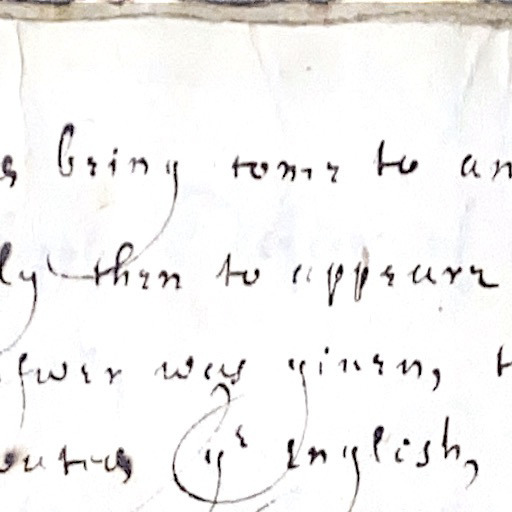 s being come to an
ly then to appeare
swer was giuen, t
outes yᵉ english,